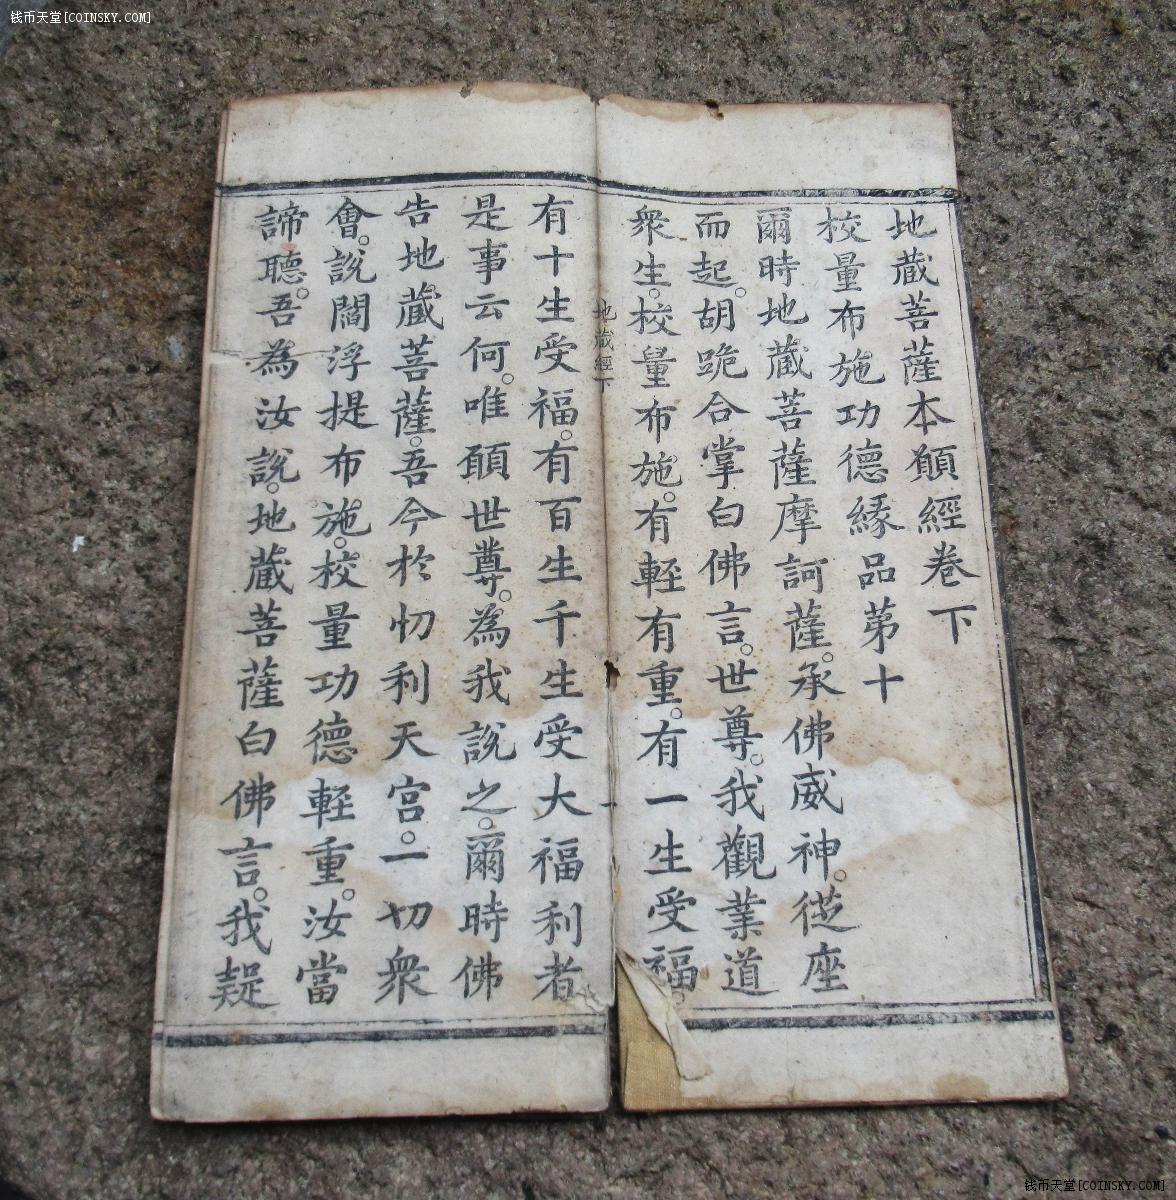 钱币天堂[COINSKY.COM]
地藏菩薩本願經卷下
校量布施功德緣品第十
爾時地藏菩薩摩訶薩。承佛威神。從座
而起。胡跪合掌白佛言。世尊。我觀業道
衆生。校量布施。有輕有重。有一生受福。
地藏經下
有十生受福。有百生千生受大福利者
是事云何。唯願世尊。為我說之。爾時佛
告地藏菩薩。吾今於忉利天宮。一切衆
會。說閻浮提布施。校量功德輕重。汝當
諦聽。吾為汝說。地藏菩薩白佛言。我疑
钱币天堂[COINSKY.COM]